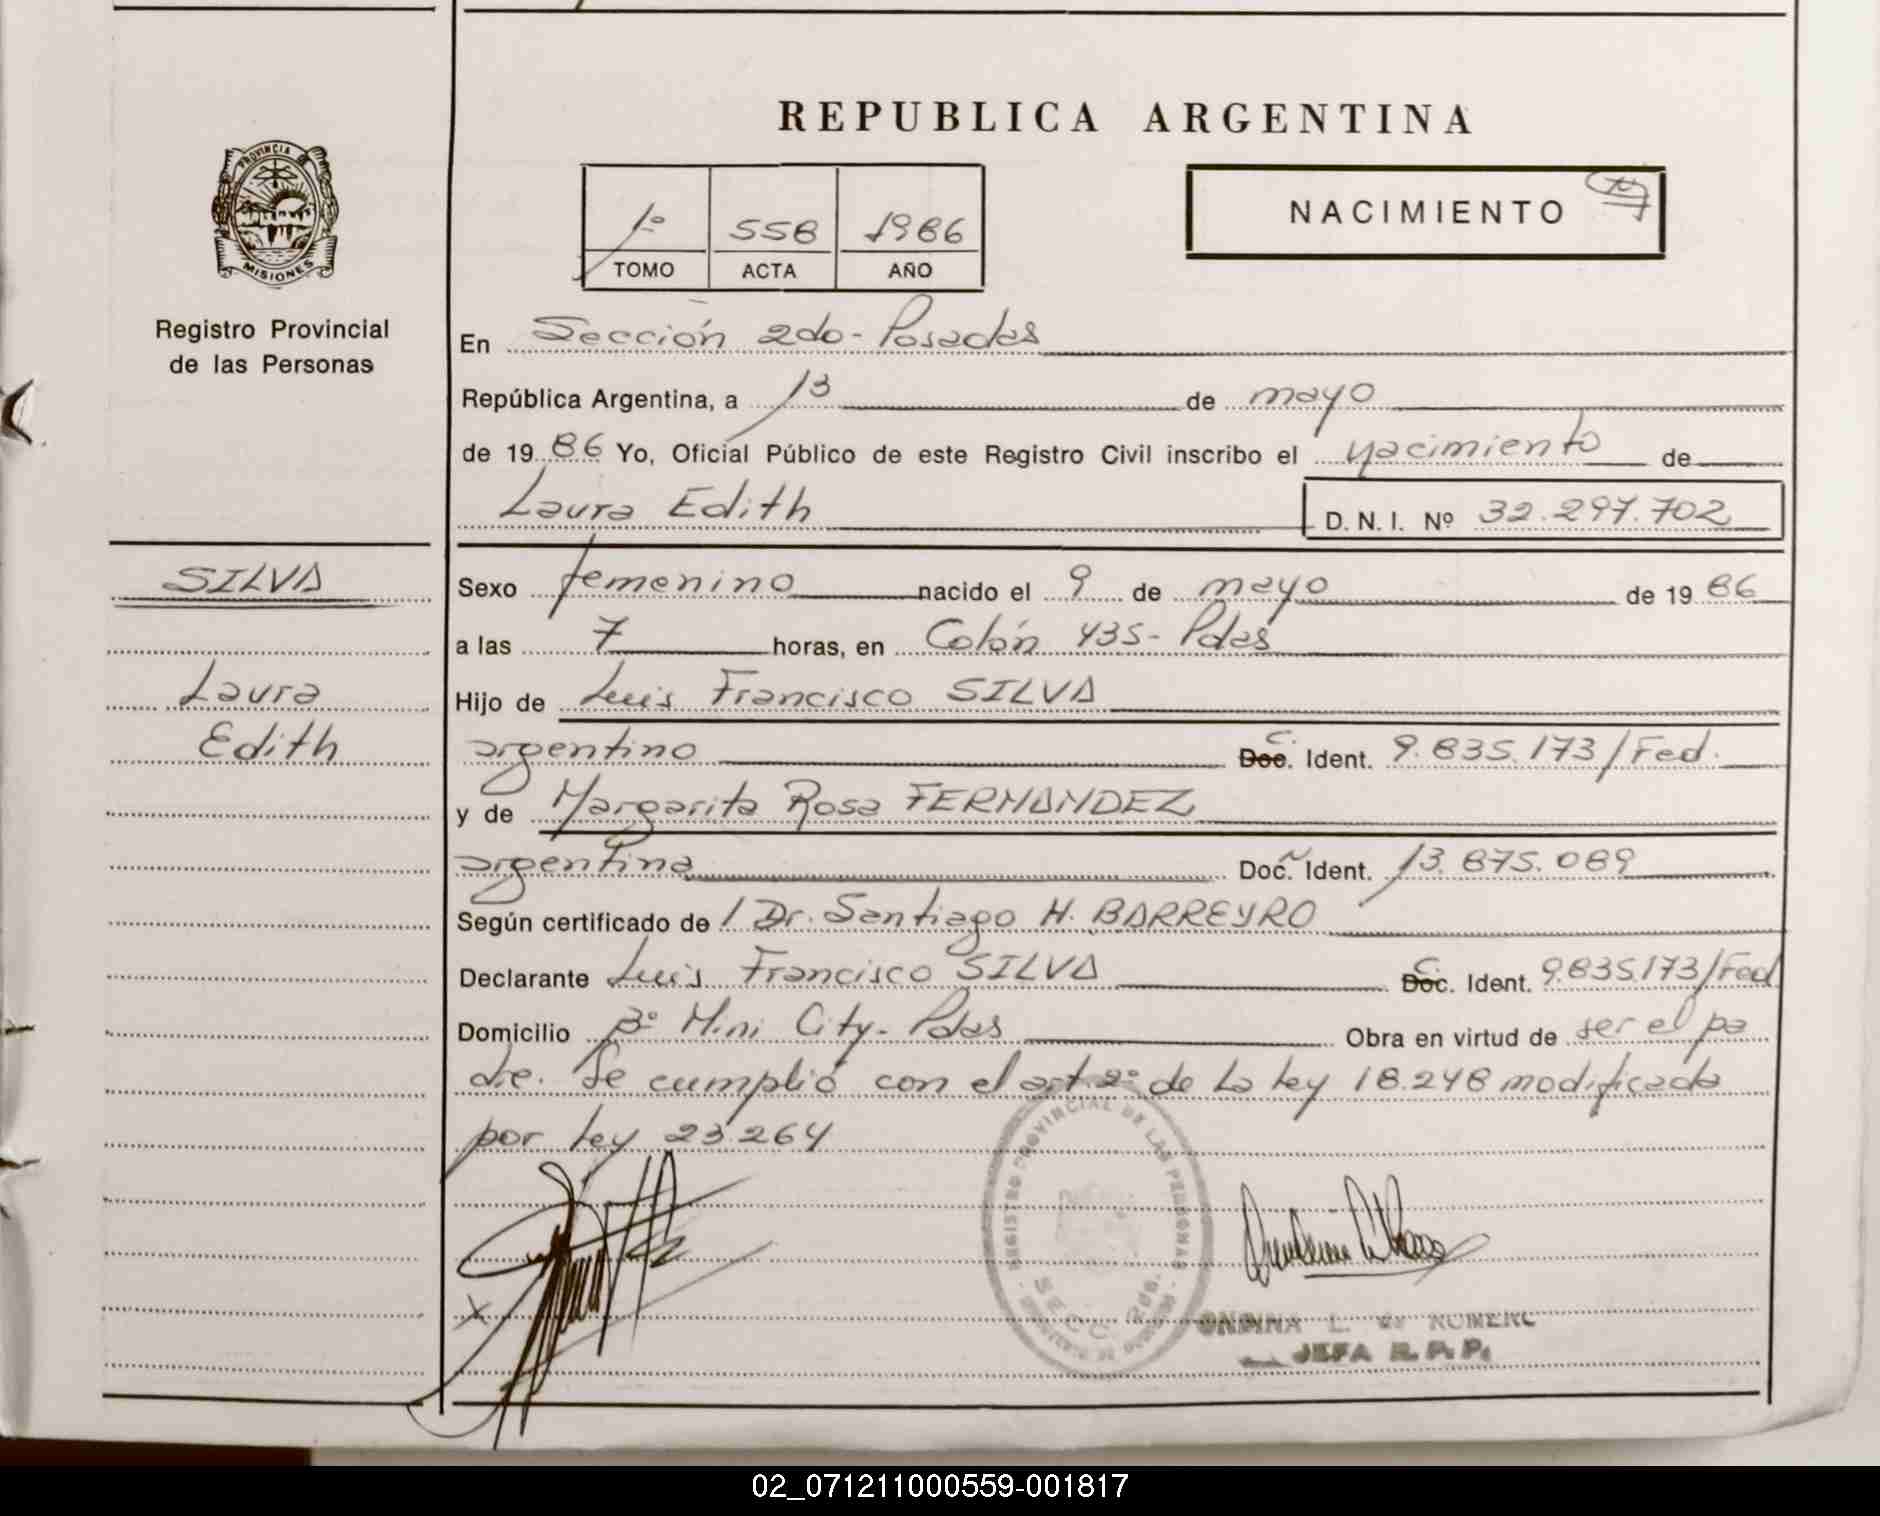 REPUBLICA ARGENTINA
PROVINCIA DE
MISIONES
Registro Provincial
de las Personas
1º 558 1986
TOMO ACTA AÑO
NACIMIENTO
En Sección 2do - Posadas
República Argentina, a 13 de mayo
de 1986 Yo, Oficial Público de este Registro Civil inscribo el nacimiento de
Laura Edith D. N. I. Nº 32.297.702
SILVA
Laura
Edith
Sexo femenino nacido el 9 de mayo de 1986
a las 7 horas, en Colón 435 - Pdas
Hijo de Luis Francisco SILVA
argentino Doc. C. Ident. 9.835.173/Fed.
y de Margarita Rosa FERNANDEZ
argentina Doc. Ident. 13.875.089
Según certificado de / Dr. Santiago H. BARREYRO
Declarante Luis Francisco SILVA Doc. C. Ident. 9.835.173/Fed
Domicilio Bº Mini City - Pdas Obra en virtud de ser el pa
dre. Se cumplió con el art. 2º de La Ley 18.248 modificada
por Ley 23.264
REGISTRO PROVINCIAL DE LAS PERSONAS
SECC. 2da.
ONDINA L. de ROMERO
JEFA R. P. P.
02_071211000559-001817